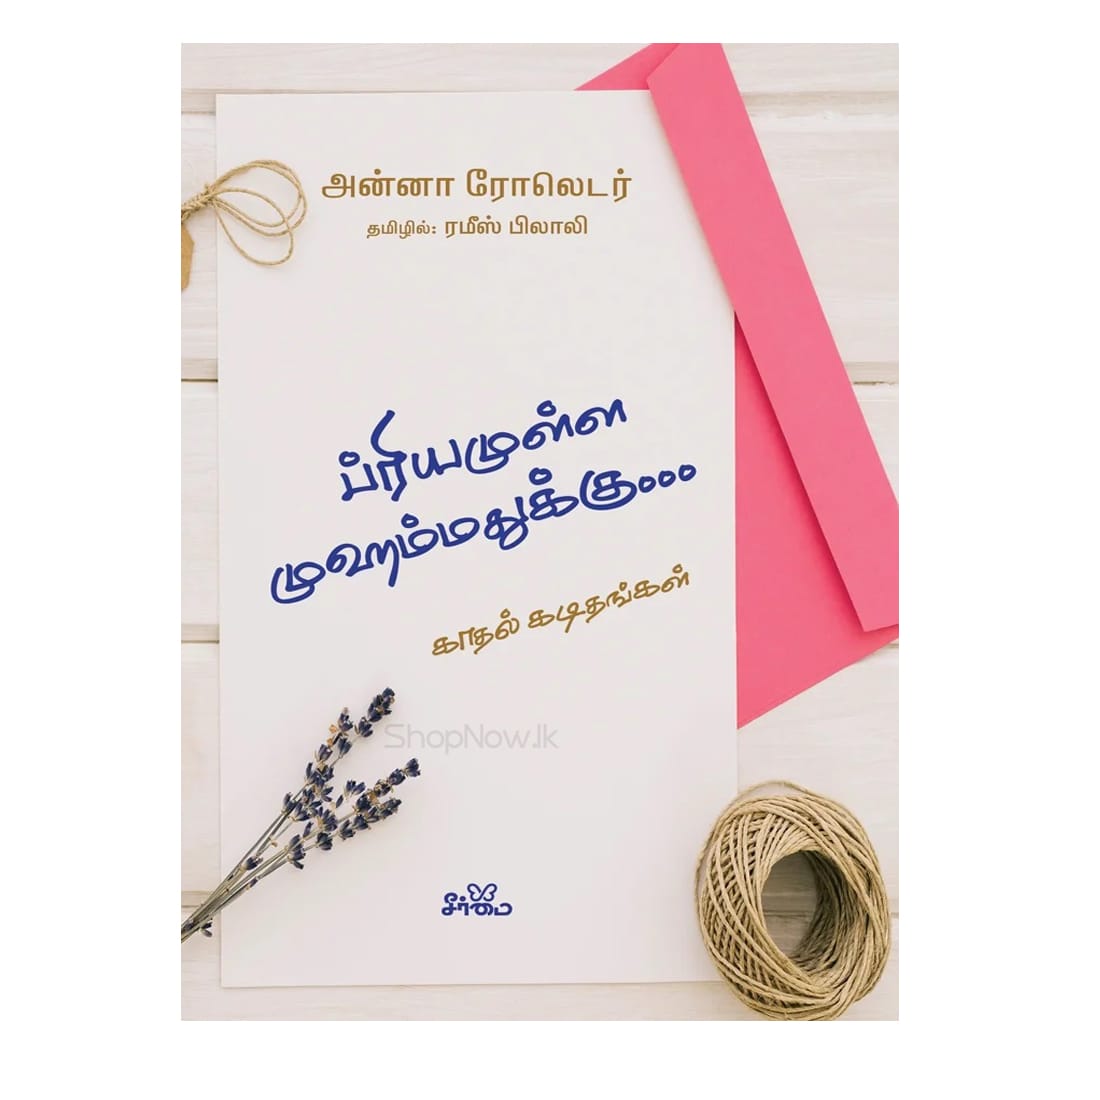 அன்னா ரோலெடர்
தமிழில்: ரமீஸ் பிலாலி
ப்ரியமுள்ள
முஹம்மதுக்கு...
காதல் கடிதங்கள்
ShopNow.lk
சீர்மை